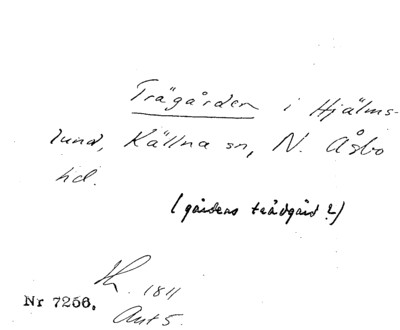 Trägården i Hjälms-
lund, Källna sn, N. Åsbo
hd.
(gårdens trädgård?)
1811
Nr 7256.
Ant 5.